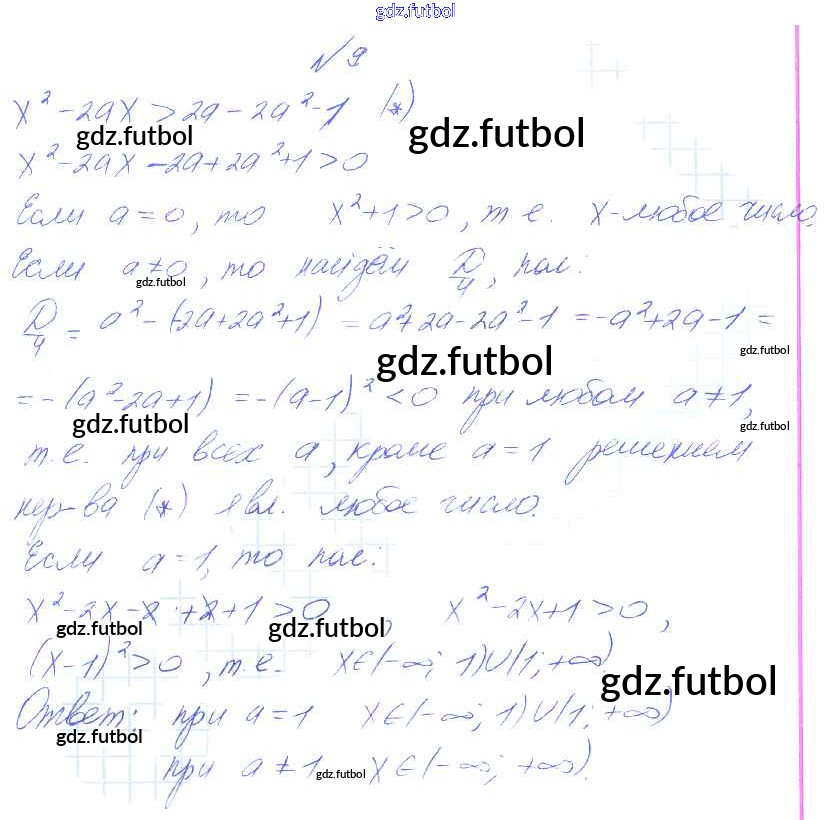 gdz.futbol
№ 9
x² - 2ax > 2a - 2a² - 1 (*)
gdz.futbol gdz.futbol
x² - 2ax - 2a + 2a² + 1 > 0
Если a = 0, то x² + 1 > 0, т.е. x - любое число.
Если a ≠ 0, то найдём D/4, пол:
gdz.futbol
D/4 = a² - (-2a + 2a² + 1) = a² + 2a - 2a² - 1 = -a² + 2a - 1 =
gdz.futbol gdz.futbol
= -(a² - 2a + 1) = -(a - 1)² < 0 при любом a ≠ 1,
gdz.futbol gdz.futbol
т.е. при всех a, кроме a = 1 решением
нер-ва (*) явл. любое число.
Если a = 1, то пол:
x² - 2x - 2 + 2 + 1 > 0, x² - 2x + 1 > 0,
gdz.futbol gdz.futbol
(x - 1)² > 0, т.е. x ∈ (-∞; 1) ∪ (1; +∞)
gdz.futbol
Ответ: при a = 1 x ∈ (-∞; 1) ∪ (1; +∞)
gdz.futbol
при a ≠ 1 x ∈ (-∞; +∞).
gdz.futbol